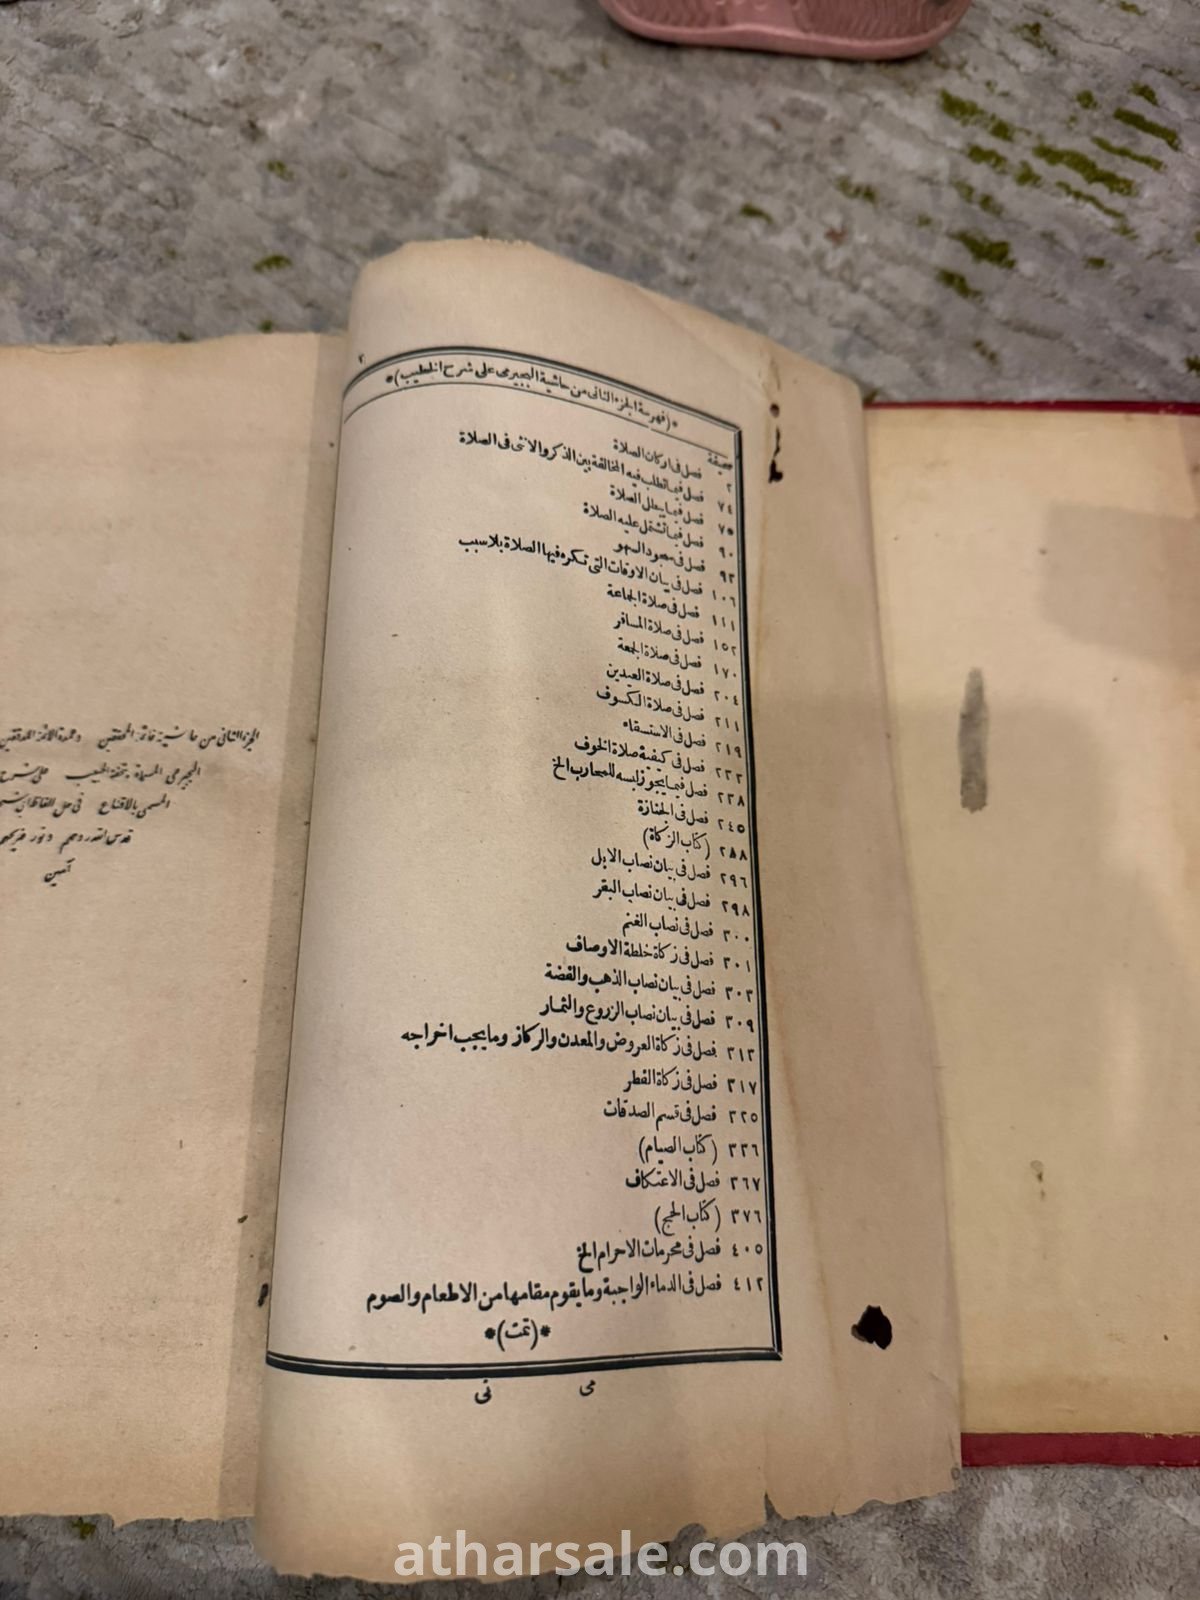 *(فهرسة الجزء الثانى من حاشية البجيرمى على شرح الخطيب)*
٢
صحيفة
٢ فصل فى اركان الصلاة
٧٤ فصل فيما تطلب فيه المخالفة بين الذكر والانثى فى الصلاة
٧٥ فصل فيما يبطل الصلاة
٩٠ فصل فيما تشتمل عليه الصلاة
٩٣ فصل فى سجود السهو
١٠٦ فصل فى بيان الاوقات التى تكره فيها الصلاة بلا سبب
١١١ فصل فى صلاة الجماعة
١٥٢ فصل فى صلاة المسافر
١٧٠ فصل فى صلاة الجمعة
٢٠٤ فصل فى صلاة العيدين
٢١١ فصل فى صلاة الكسوف
٢١٩ فصل فى الاستسقاء
٢٣٢ فصل فى كيفية صلاة الخوف
٢٣٨ فصل فيما يجوز لبسه للمحارب الخ
٢٤٥ فصل فى الجنازة
٢٨٨ (كتاب الزكاة)
٢٩٦ فصل فى بيان نصاب الابل
٢٩٨ فصل فى بيان نصاب البقر
٣٠٠ فصل فى نصاب الغنم
٣٠١ فصل فى زكاة خلطة الاوصاف
٣٠٣ فصل فى بيان نصاب الذهب والفضة
٣٠٩ فصل فى بيان نصاب الزروع والثمار
٣١٣ فصل فى زكاة العروض والمعدن والركاز وما يجب اخراجه
٣١٧ فصل فى زكاة الفطر
٣٢٥ فصل فى قسم الصدقات
٣٣٦ (كتاب الصيام)
٣٦٧ فصل فى الاعتكاف
٣٧٦ (كتاب الحج)
٤٠٥ فصل فى محرمات الاحرام الخ
٤١٢ فصل فى الدماء الواجبة وما يقوم مقامها من الاطعام والصوم
*(تمت)*
مى نى
الجزء الثانى من حاشية خاتمة المحققين وعمدة الائمة المدققين
البجيرمى المسماة بتحفة الحبيب على شرح
المسمى بالاقناع فى حل الفاظ ابى
قدس الله روحهم ونور
آمين
atharsale.com